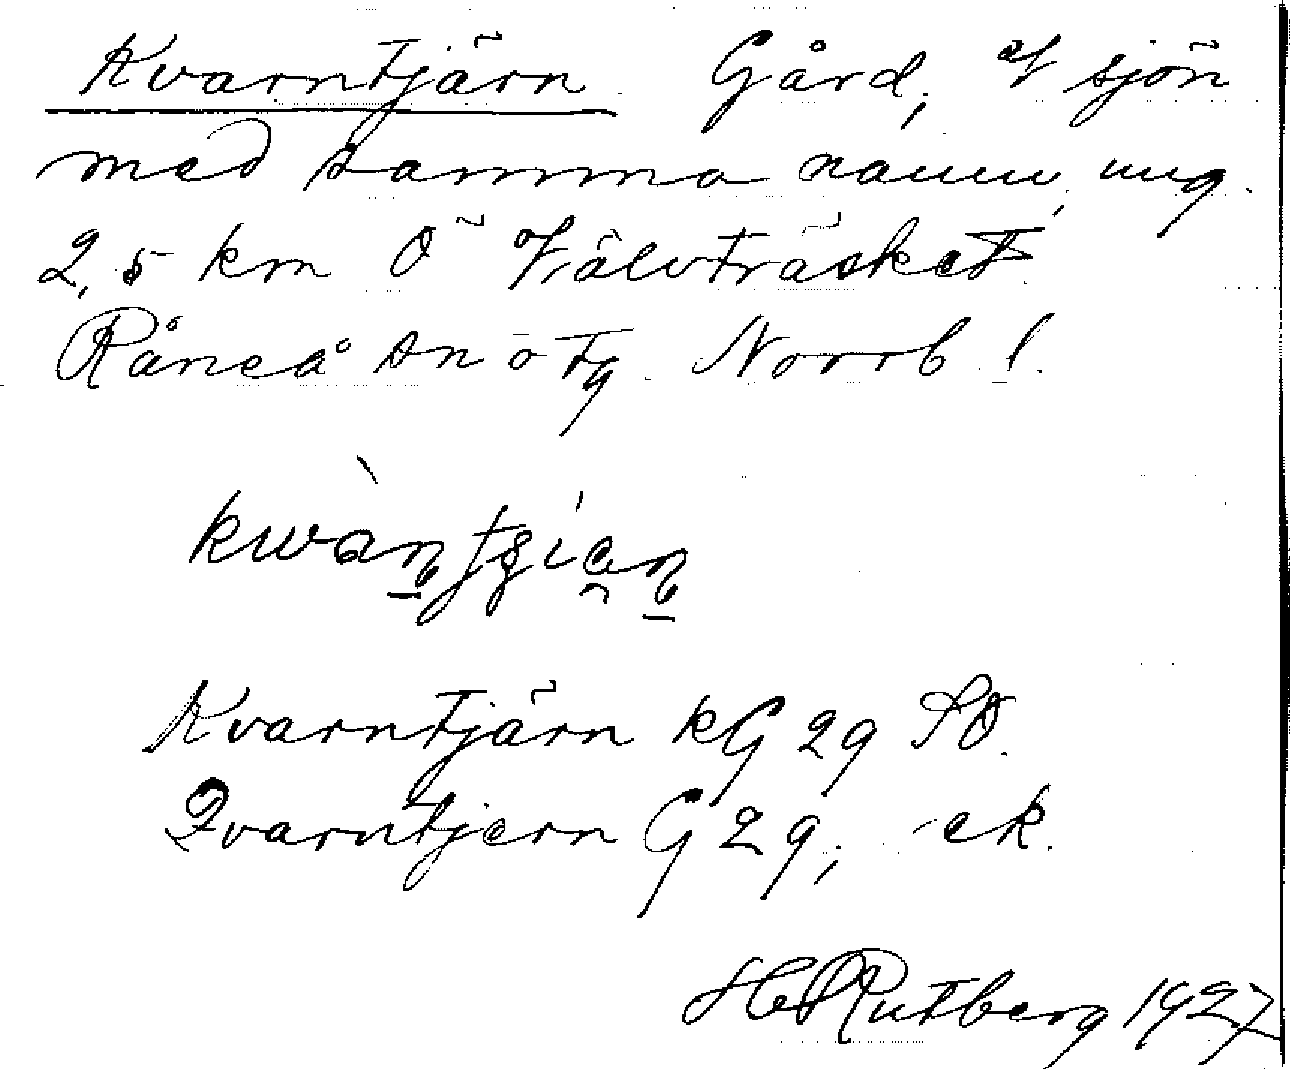 Kvarntjärn Gård, v sjön
med samma namn, ung.
2,5 km Ö Välvträsket.
Råneå sn o tg. Norrb l.
Kvarntjärn kG 29 SO.
Qvarntjern G 29; ek.
H Rutberg 1927